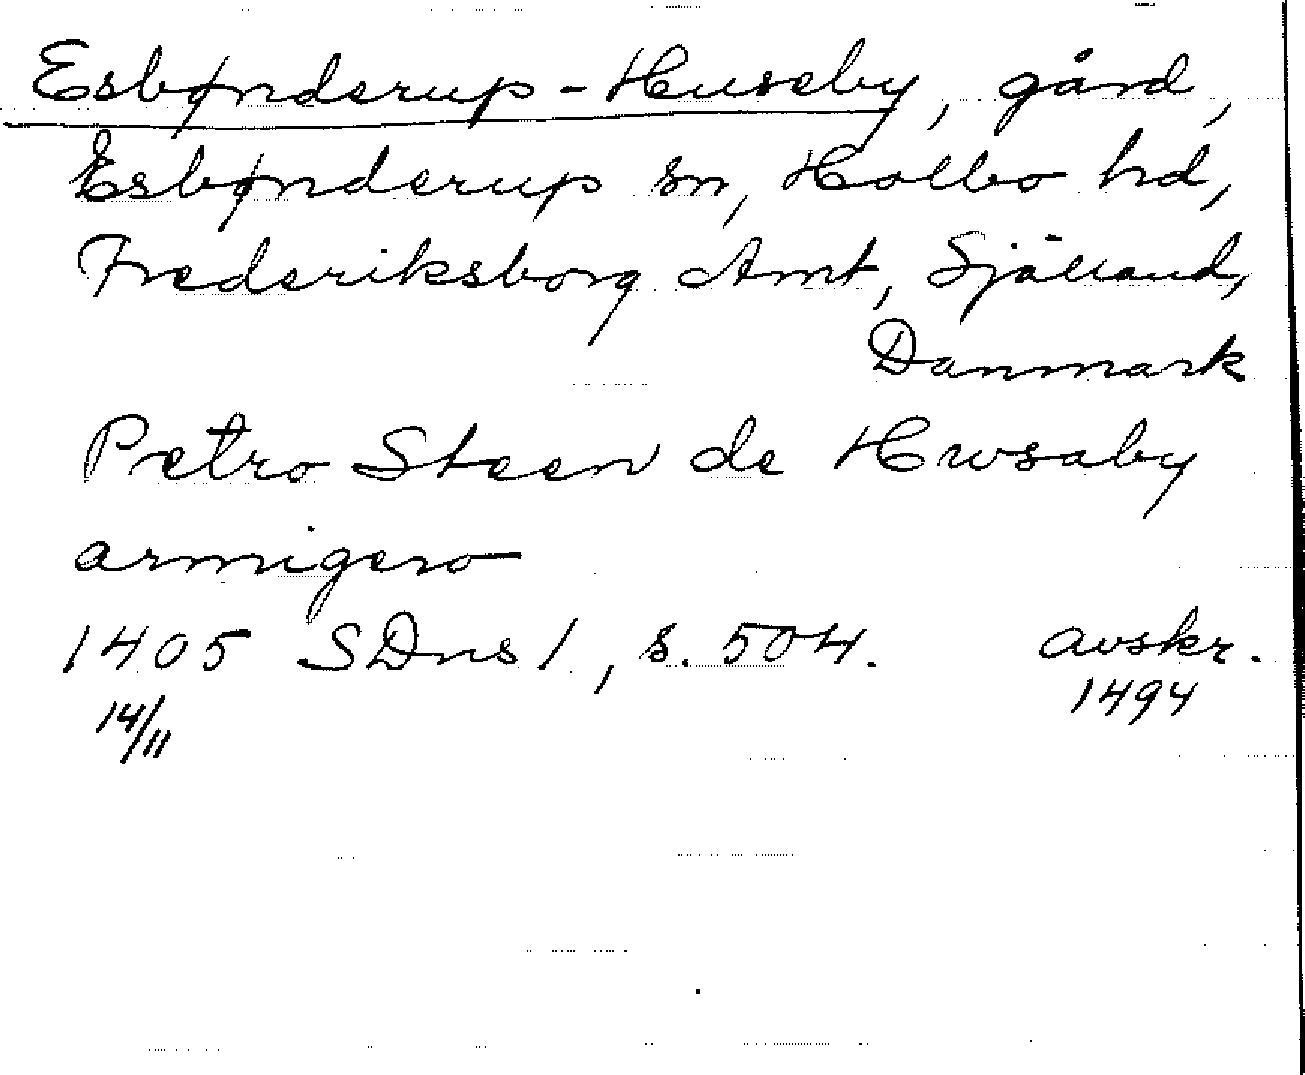 Esbønderup-Huseby, gård,
Esbønderup sn, Holbo hd,
Frederiksborg Amt, Själland,
Danmark
Petro Steen de Hwsæby
armigero
1405 SDns 1, s. 504. avskr.
14/11 1494